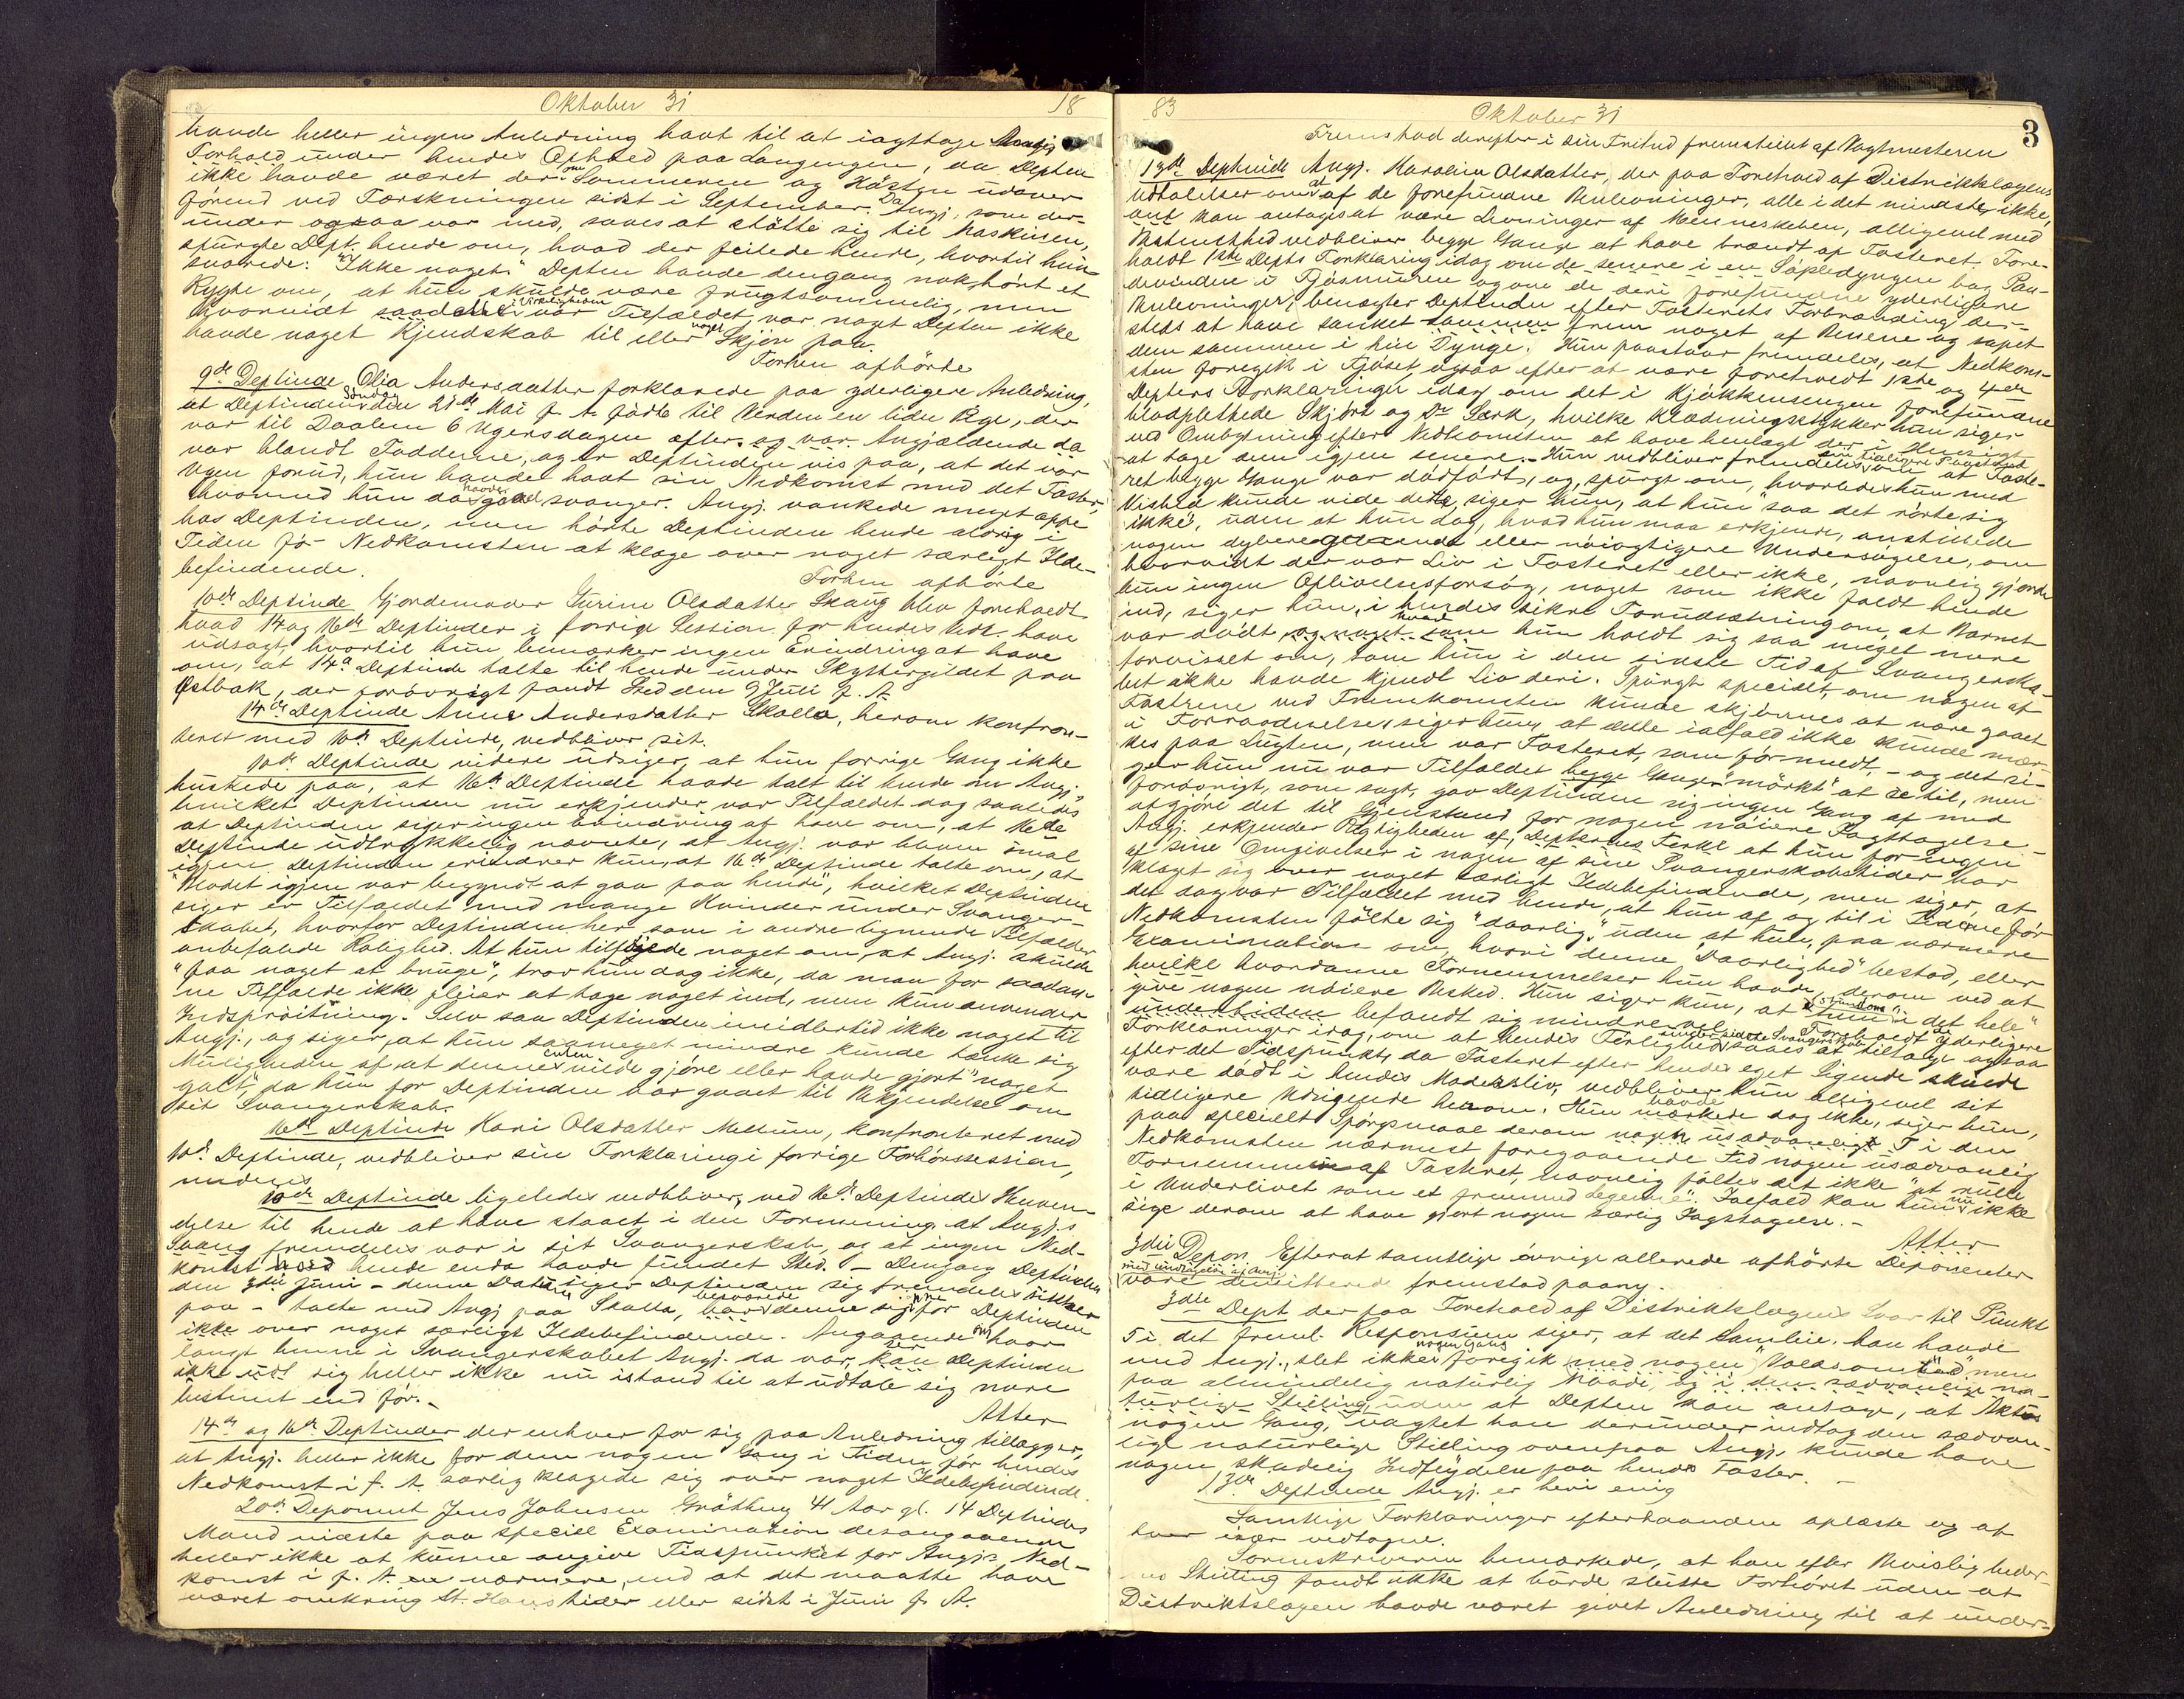 Oktober 31
18
havde heller ingen Anledning havt til at iagttage Angj.s
Forhold under hendes Ophold paa Langengen, da Depten
ikke havde været der om Sommeren og Høsten udover
førend ved Tærskningen sidst i September. Da Angj., som der-
under ogsaa var med, saaes at støtte sig til Maskinen,
spurgte Dept. hende om, hvad der feilede hende, hvortil hun
svarede: "Ikke noget." Depten havde dengang nok hørt et
Rygte om, at hun skulde være frugtsommelig, men
hvorvidt saadant i Virkeligheden var Tilfældet, var noget Depten ikke
havde noget Kjendskab til eller noget Skjøn paa.
Forhen afhørte
9de Deptinde Olia Andersdatter forklarede paa yderligere Anledning,
at Deptinden Søndag den 21de Mai f. A. fødte til Verden en liden Pige, der
var til Daaben 6 Ugersdagen efter og var Angjældende da
var blandt Fadderne, og er Deptinden vis paa, at det var
Ugen forud, hun havde havt sin Nedkomst med det Foster,
hvormed hun da havde gaaet svanger. Angj. vankede meget ofte
hos Deptinden, men hørte Deptinden hende aldrig i
Tiden før Nedkomsten at klage over noget særligt Ilde-
befindende.
Forhen afhørte
10de Deptinde Gjordemoder Gurine Olsdatter Skaug blev foreholdt
hvad 14 og 16de Deptinder i forrige Session for hendes Vedk. have
udsagt, hvortil hun bemærker ingen Erindring at have
om, at 14de Deptinde talte til hende under Skyttergildet paa
Østbak, der forøvrigt fandt Sted den 9 Juli f. A.
14de Deptinde Anne Andersdatter Skolla, herom konfron-
teret med 10de Deptinde, vedbliver sit.
10de Deptinde videre udsiger, at hun forrige Gang ikke
huskede paa, at 16de Deptinde havde talt til hende om Angj.,
hvilket Deptinden nu erkjender var Tilfældet dog saaledes
at Deptinden siger ingen Erindring at have om, at 16de
Deptinde udtrykkelig nævnte, at Angj. var bleven smal
igjen. Deptinden erindrer kun, at 16de Deptinde talte om, at
"Blodet igjen var begyndt at gaa paa hende", hvilket Deptinden
siger er Tilfældet med mange Kvinder under Svanger-
skabet, hvorfor Deptinden her som i andre lignende Tilfælder
anbefalede Rolighed. At hun tilføjede noget om, at Angj. skulde
"faa noget at bruge", tror hun dog ikke, da man for saadan-
ne Tilfælde ikke pleier at tage noget ind, men kun anvender
Indsprøitning. Selv saa Deptinden imidlertid ikke noget til
Angj., og siger, at hun saameget mindre kunde tænke sig
Muligheden af at denne enten vilde gjøre eller havde gjort "noget
galt" da hun for Deptinden var gaaet til Bekjendelse om
sit Svangerskab.
16de Deptinde Kari Olsdatter Mellum, konfronteret med
10de Deptinde, vedbliver sin Forklaring i forrige Forhørssession,
medens
10de Deptinde ligeledes vedbliver, ved 16de Deptindes Henven-
delse til hende at have staaet i den Formening at Angj.s
Svang fremdeles var i sit Svangerskab, og at ingen Ned-
komst hos hende enda havde fundet Sted. – Dengang Deptinden
den 3die Juni – denne Datum siger Deptinden sig fremdeles sikker
paa – talte med Angj. paa Skolla, besværede denne sig for Deptinden
ikke over noget særligt Ildebefindende. Angaaende om hvor
langt henne i Svangerskabet Angj. da var, er Deptinden
ikke ud sig heller ikke nu istand til at udtale sig mere
bestemt end før. –
Atter
14de og 16de Deptinder der enhver for sig paa Anledning tillægger,
at Angj. heller ikke for dem nogen Gang i Tiden før hendes
Nedkomst i f. A. særlig klagede sig over noget Ildebefindende.
20de Deponent Jens Johnsen Gråthing 41 Aar gl. 14 Deptindes
Mand vidste paa speciel Examination desangaaende
heller ikke at kunne angive Tidspunktet for Angj.s Ned-
komst i f. A. nærmere, end at det maatte have
været omkring St. Hans tider eller sidst i Juni f. A.
83
Oktober 31
3
Fremstod derefter i sin Fritid fremstillet af Vagtmesteren
13de Deptinde Angj. Karoline Olsdatter, der paa Forehold af Distriktslægens
Udtalelser om at af de forefundne Benlevninger, alle i det mindste ikke,
ant kan antages at være Levninger af Menneskeben, alligevel med
Bestemthed vedbliver begge Gange at have brændt op Fosteret. Fore-
holdt 1ste Depts Forklaring idag om de senere i en Søpledyngen bag Pan-
devinden i Fjøsmuren og om de deri forefundne yderligere
Benlevninger, benægter Deptinden efter Fosterets Forbrænding der-
steds at have sanket sammen frem noget af Benene og søpet
dem sammen i hin Dynge. Hun paastaar fremdeles, at Nedkom-
sten foregik i Fjøset, ogsaa efter at være foreholdt 1ste og 4de
Depters Forklaringer idag om det i Kjøkkensengen forefundne
blodplettede Skjørt og Do Særk, hvilke Klædningsstykker hun siger
ved Ombytning efter Nedkomsten at have henlagt der i Hensigt
at tage dem igjen senere. Hun vedbliver fremdeles sin tidligere Paastand om at Foste-
ret begge Gange var dødfødt, og, spurgt om, hvorledes hun med
Vished kunde vide dette, siger hun, at hun "saa det rørte sig
ikke", uden at hun dog, hvad hun maa erkjende, anstillede
nogen dyberegaaende eller nøiagtigere Undersøgelse, om
hvorvidt der var Liv i Fosteret eller ikke, navnlig gjorde
hun ingen Oplivelsesforsøg, noget som ikke faldt hende
ind, siger hun, i hendes sikre Forudsætning om, at Barnet
var dødt, hvad hun holdt sig saa meget mere
forvisset om, som hun i den sidste Tid af Svangerska-
bet ikke havde kjendt Liv deri. Spurgt specielt, om nogen af
Fostrene ved Fremkomsten kunde skjønnes at være gaaet
i Forraadnelse, siger hun, at dette ialfald ikke kunde mær-
kes paa Lugten, men var Fosteret, som før meldt, – og det si-
ger hun nu var Tilfældet begge Gange "mørkt" at se til, men
forøvrigt, som sagt, gav Deptinden sig ingen Gang af med
at gjøre det til Gjenstand for nogen nøiere Iagttagelse –
Angj. erkjender Rigtigheden af, Depternes Forkl at hun for ingen
af sine Omgivelser i nogen af sine Svangerskabstider har
klaget sig over noget særligt Ildebefindende, men siger, at
det dog var Tilfældet med hende, at hun af og til i Tiderne før
Nedkomsten følte sig "daarlig", uden at hun, paa nærmere
Examination om, hvori denne "Daarlighed" bestod, eller
hvilke hvordanne Fornemmelser hun havde, derom ved at
give nogen nøiere Besked. Hun siger kun, at hun "stundom i det hele"
undertiden befandt sig mindre vel. Foreholdt de yderligere
Forklaringer idag, om at hendes Førlighed under sidste Svangerskab saaes at tiltage ogsaa
efter det Tidspunkt, da Fosteret efter hendes eget Sigende skulde
være dødt i hendes Modersliv, vedbliver hun alligevel sit
tidligere Udsigende herom. Hun havde mærkede dog ikke, siger hun,
paa specielt Spørgsmaal derom nogen usædvanlige F i den
Nedkomsten nærmest foregaaende Tid nogen usædvanlig
Fornemmelse af Fosteret, navnlig føltes det ikke "at rulle
i Underlivet som et fremmed Legeme". Ialfald kan hun nu ikke
sige derom at have gjort nogen særlig Iagttagelse. –
Atter
3die Depon. Efterat samtlige øvrige allerede afhørte Deponenter
med Undtagelse af Angj.
vare dimitterede fremstod paany.
3die Dept der paa Forehold af Distriktslægens Svar til Punkt
5 i det freml. Responsum siger, at det Samleie, han havde
med Angj., slet ikke nogen Gang foregik med nogen "Voldsomhed" men
paa almindelig naturlig Maade, og i den sædvanlige na-
turlige Stilling, uden at Depten kan antage, at Akten
nogen Gang, uagtet han derunder indtog den sædvan-
lige naturlige Stilling ovenpaa Angj., kunde have
nogen skadelig Indflydelse paa hendes Foster. –
13de Deptinde Angj. er heri enig
Samtlige Forklaringer efterhaanden oplæste og af
hver især vedtagne.
Sorenskriveren bemærkede, at han efter Bevisligheder-
nes Stilling fandt ikke at burde slutte Forhøret uden at
Distriktslægen havde været givet Anledning til at under-